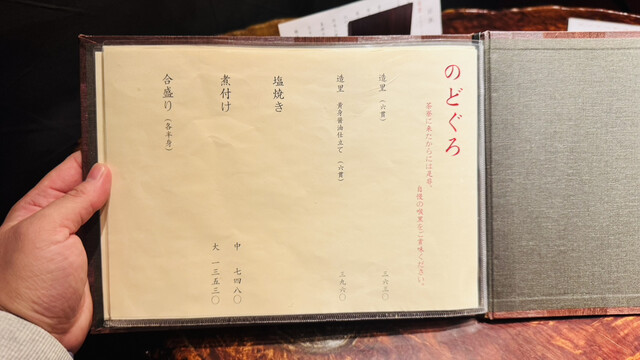 のどぐろ
茶寮に来たからには是非、
自慢の喉黒をご賞味ください。
造里（六貫） 二六三〇
造里 黄身醤油仕立て（六貫） 二九六〇
塩焼き
煮付け 中 七四八〇
大 一三五三〇
合盛り（各半身）